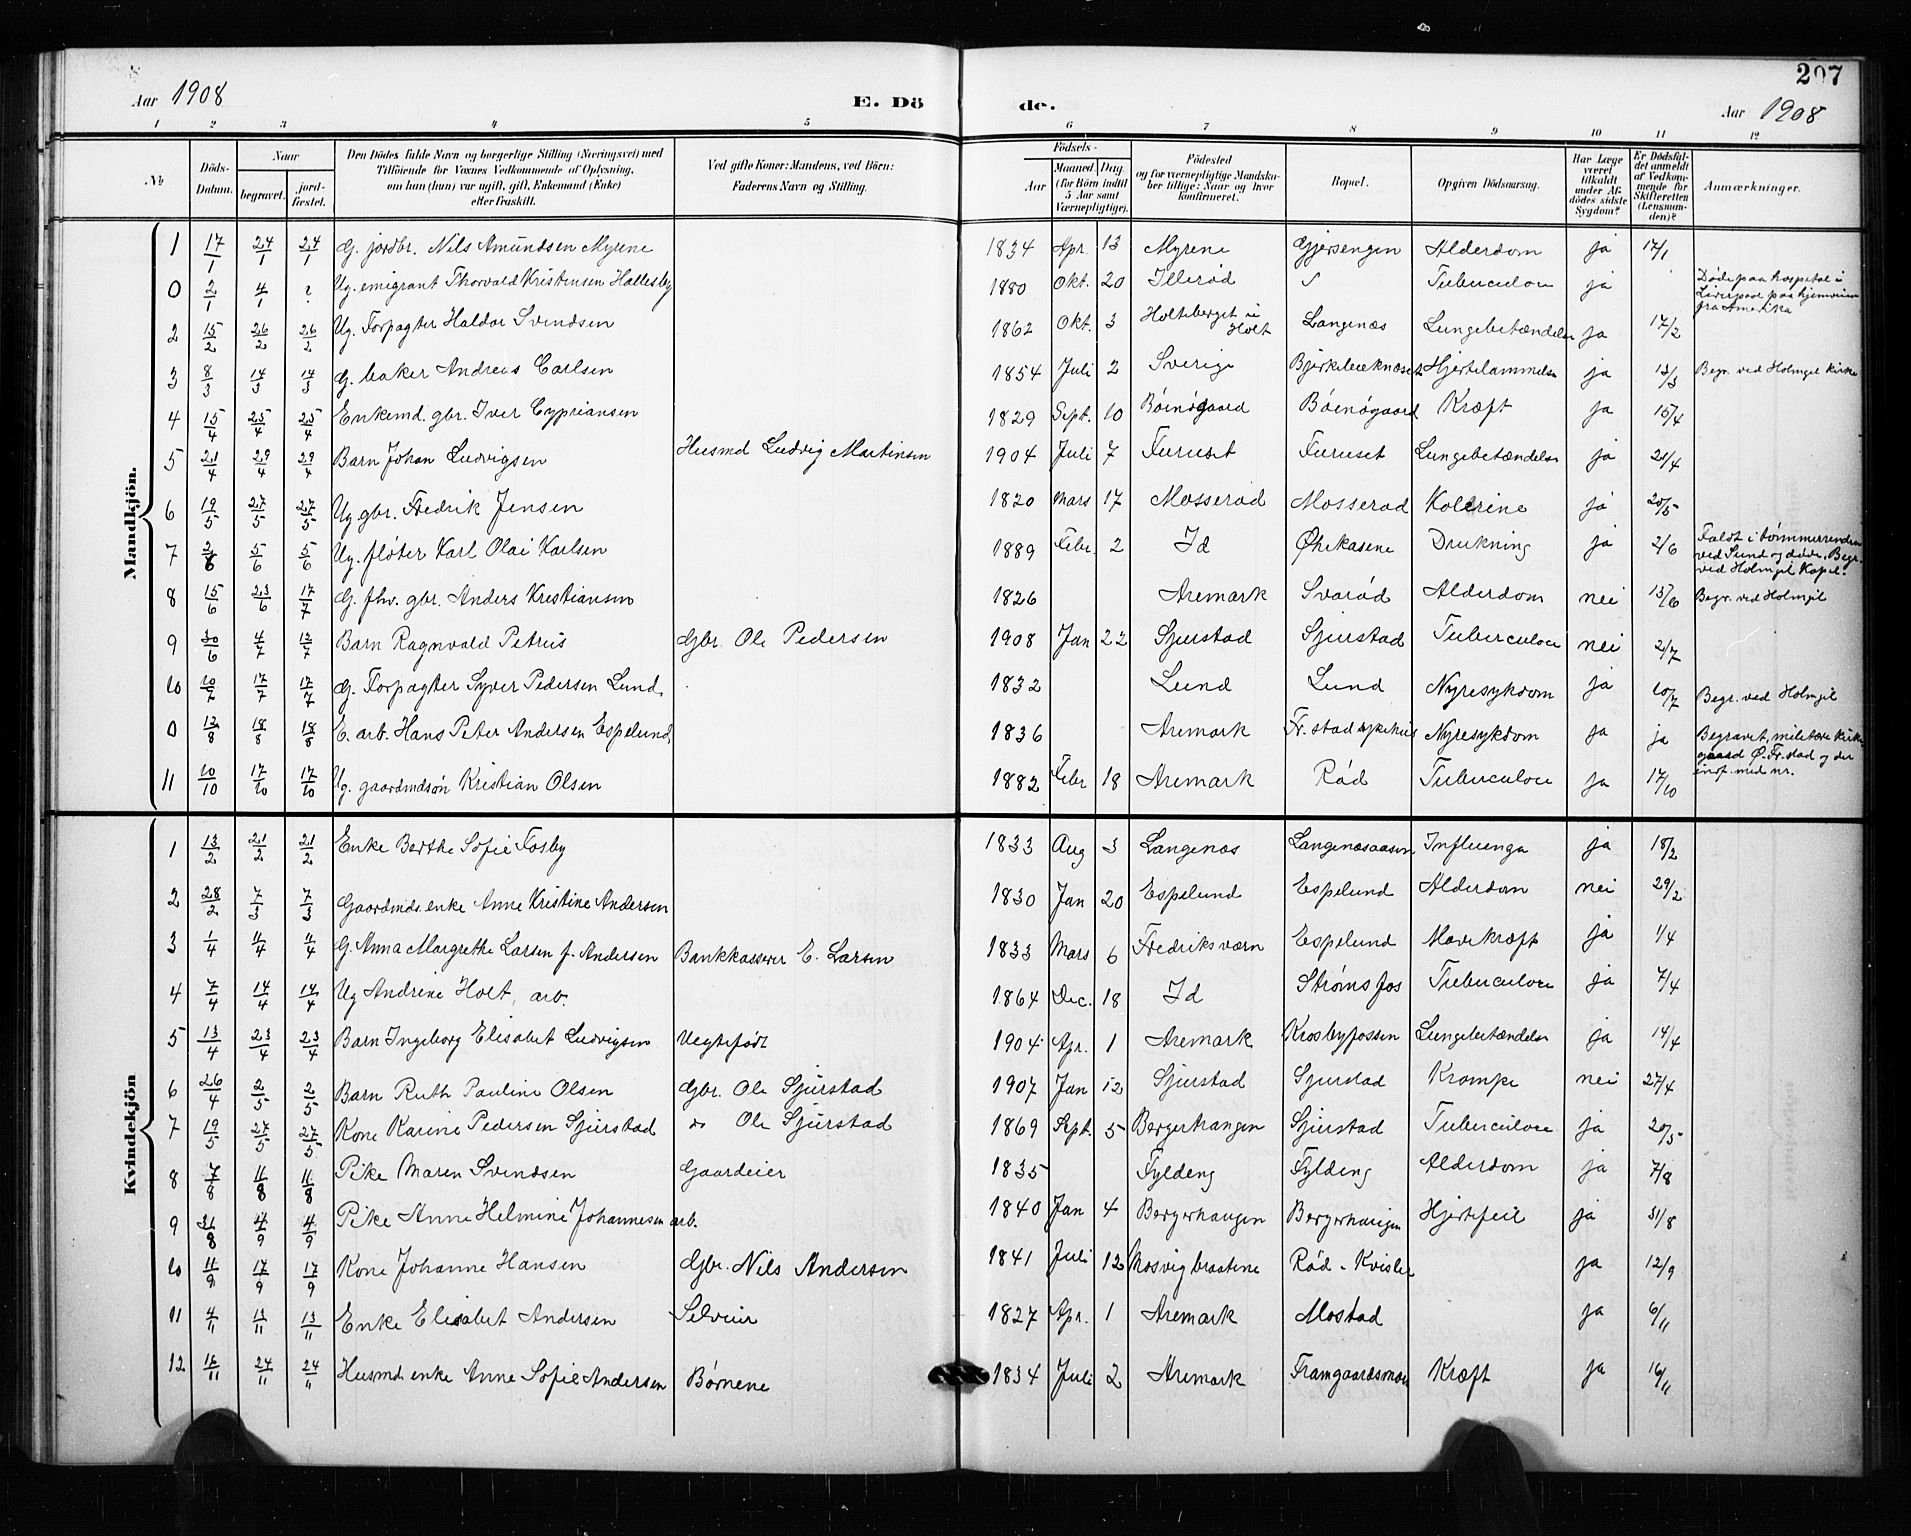 207
Aar 1908
E. Dö
de.
Aar 1908
1 2 3 4 5 6 7 8 9 10 11 12
No Döds-Datum. Naar begravet. jord-fæstet. Den Dödes fulde Navn og borgerlige Stilling (Næringsvei) med Tilföiende for Voxnes Vedkommende af Oplysning, om han (hun) var ugift, gift, Enkemand (Enke) eller fraskilt. Ved gifte Koner: Mandens, ved Börn: Faderens Navn og Stilling. Födsels- Aar Maaned. Dag (for Börn indtil 5 Aar samt Værnepligtige). Födested og for værnepligtige Mandskaber tillige: Naar og hvor konfirmeret. Bopæl. Opgiven Dödsaarsag. Har Læge været tilkaldt under Afdödes sidste Sygdom? Er Dödsfaldet anmeldt af Vedkommende for Skifteretten (Lensmanden)? Anmærkninger.
Mandkjön.
1 17/1 24/1 24/1 G. jordbr. Nils Amundsen Myrene 1834 Apr 13 Myrene Gjersengen Alderdom ja 17/1
0 2/1 4/1 ? Ug. emigrant Thorvald Kristensen Hallesby 1880 Okt. 20 Illerød Tuberculose ja Døde paa hospital i Liverpool paa hjemveien fra Amerika
2 15/2 26/2 26/2 Ug. Forpagter Haldor Svendsen 1862 Okt. 3 Holteberget i Holt Langenæs Lungebetændelse ja 17/2
3 8/3 14/3 14/3 G. baker Andreas Carlsen 1854 Juli 2 Sverige Hjertelammelse ja 13/3 Begr. ved Holmgil kirke
4 15/4 25/4 25/4 Enkemd. gbr. Iver Cypriansen 1829 Sept. 10 Bøenøgaard Bøenøgaard Kræft ja 15/4
5 21/4 29/4 29/4 Barn Johan Ludvigsen Husmd Ludvig Martinsen 1904 Juli 7 Furuset Furuset Lungebetændelse ja 21/4
6 19/5 27/5 27/5 Ug gbr. Fredrik Jensen 1820 Mars 17 Mosserød Mosserød Kolerine ja 20/5
7 2/6 5/6 5/6 Ug. fløter Karl Olai Karlsen 1889 Febr. 2 Id Drukning ja 2/6 Faldt i tømmerrenden ved Sund og døde. Begr. ved Holmgil Kapel.
8 15/6 23/6 17/7 G. fhv. gbr. Anders Kristiansen 1826 Aremark Svarød Alderdom nei 15/6 Begr. ved Holmgil
9 30/6 4/7 12/7 Barn Ragnvald Petrus Gbr. Ole Pedersen 1908 Jan 22 Sjurstad Sjurstad Tuberculose nei 2/7
10 10/7 17/7 17/7 G. Forpagter Syver Pedersen Lund. 1832 Lund Lund Nyresykdom ja 10/7 Begr. ved Holmgil
0 12/8 18/8 18/8 E. arb. Hans Peter Andersen Espelund. 1836 Aremark Fr.stad sykehus Nyresykdom ja ja Begravet militære kirkegaard Ø. Fr.stad og der inf. med nr.
11 10/10 17/10 17/10 Ug. gaardmdsøn Kristian Olsen 1882 Febr 18 Aremark Rød Tuberculose ja 17/10
Kvindekjön
1 13/2 21/2 21/2 Enke Berthe Sofie Fosby 1833 Aug 3 Langenæs Langenæsaasen Influenza ja 18/2
2 28/2 7/3 7/3 Gaardmds. enke Anne Kristine Andersen 1830 Jan 20 Espelund Espelund Alderdom nei 29/2
3 1/4 11/4 11/4 G. Anna Margrethe Larsen f. Andersen Bankkasserer E. Larsen 1833 Mars 6 Fredriksværn Espelund Mavekræft ja 1/4
4 7/4 14/4 14/4 Ug Andrine Holt, arb. 1864 Dec. 18 Id Strømsfos Tuberculose ja 7/4
5 13/4 23/4 23/4 Barn Ingeborg Elisabet Ludvigsen Uegtefødt 1904 Apr. 1 Aremark Krosbyfossen Lungebetændelse ja 14/4
6 26/4 2/5 2/5 Barn Ruth Pauline Olsen Gbr. Ole Sjurstad 1907 Jan 12 Sjurstad Sjurstad Krampe nei 27/4
7 19/5 27/5 27/5 Kone Karine Pedersen Sjurstad do Ole Sjurstad 1869 Sept. 5 Bergerhangen Sjurstad Tuberculose ja 20/5
8 7/8 11/8 11/8 Pike Maren Svendsen Gaardeier 1835 Fyldeng Fyldeng Alderdom ja 7/8
9 31/8 4/9 4/9 Pike Anne Helmine Johannesen arb. 1840 Jan 4 Bergerhaugen Bergerhaugen Hjertefeil ja 31/8
10 11/9 17/9 17/9 Kone Johanne Hansen Gbr. Nils Andersen 1841 Juli 12 Mosvigbraatene Rød - Kvisler ja 12/9
11 4/11 13/11 13/11 Enke Elisabet Andersen Selveier 1827 Apr. 1 Aremark Mostad ja 6/11
12 16/11 24/11 24/11 Husmd. enke Anne Sofie Andersen Børnene 1834 Juli 2 Aremark Kræft ja 16/11